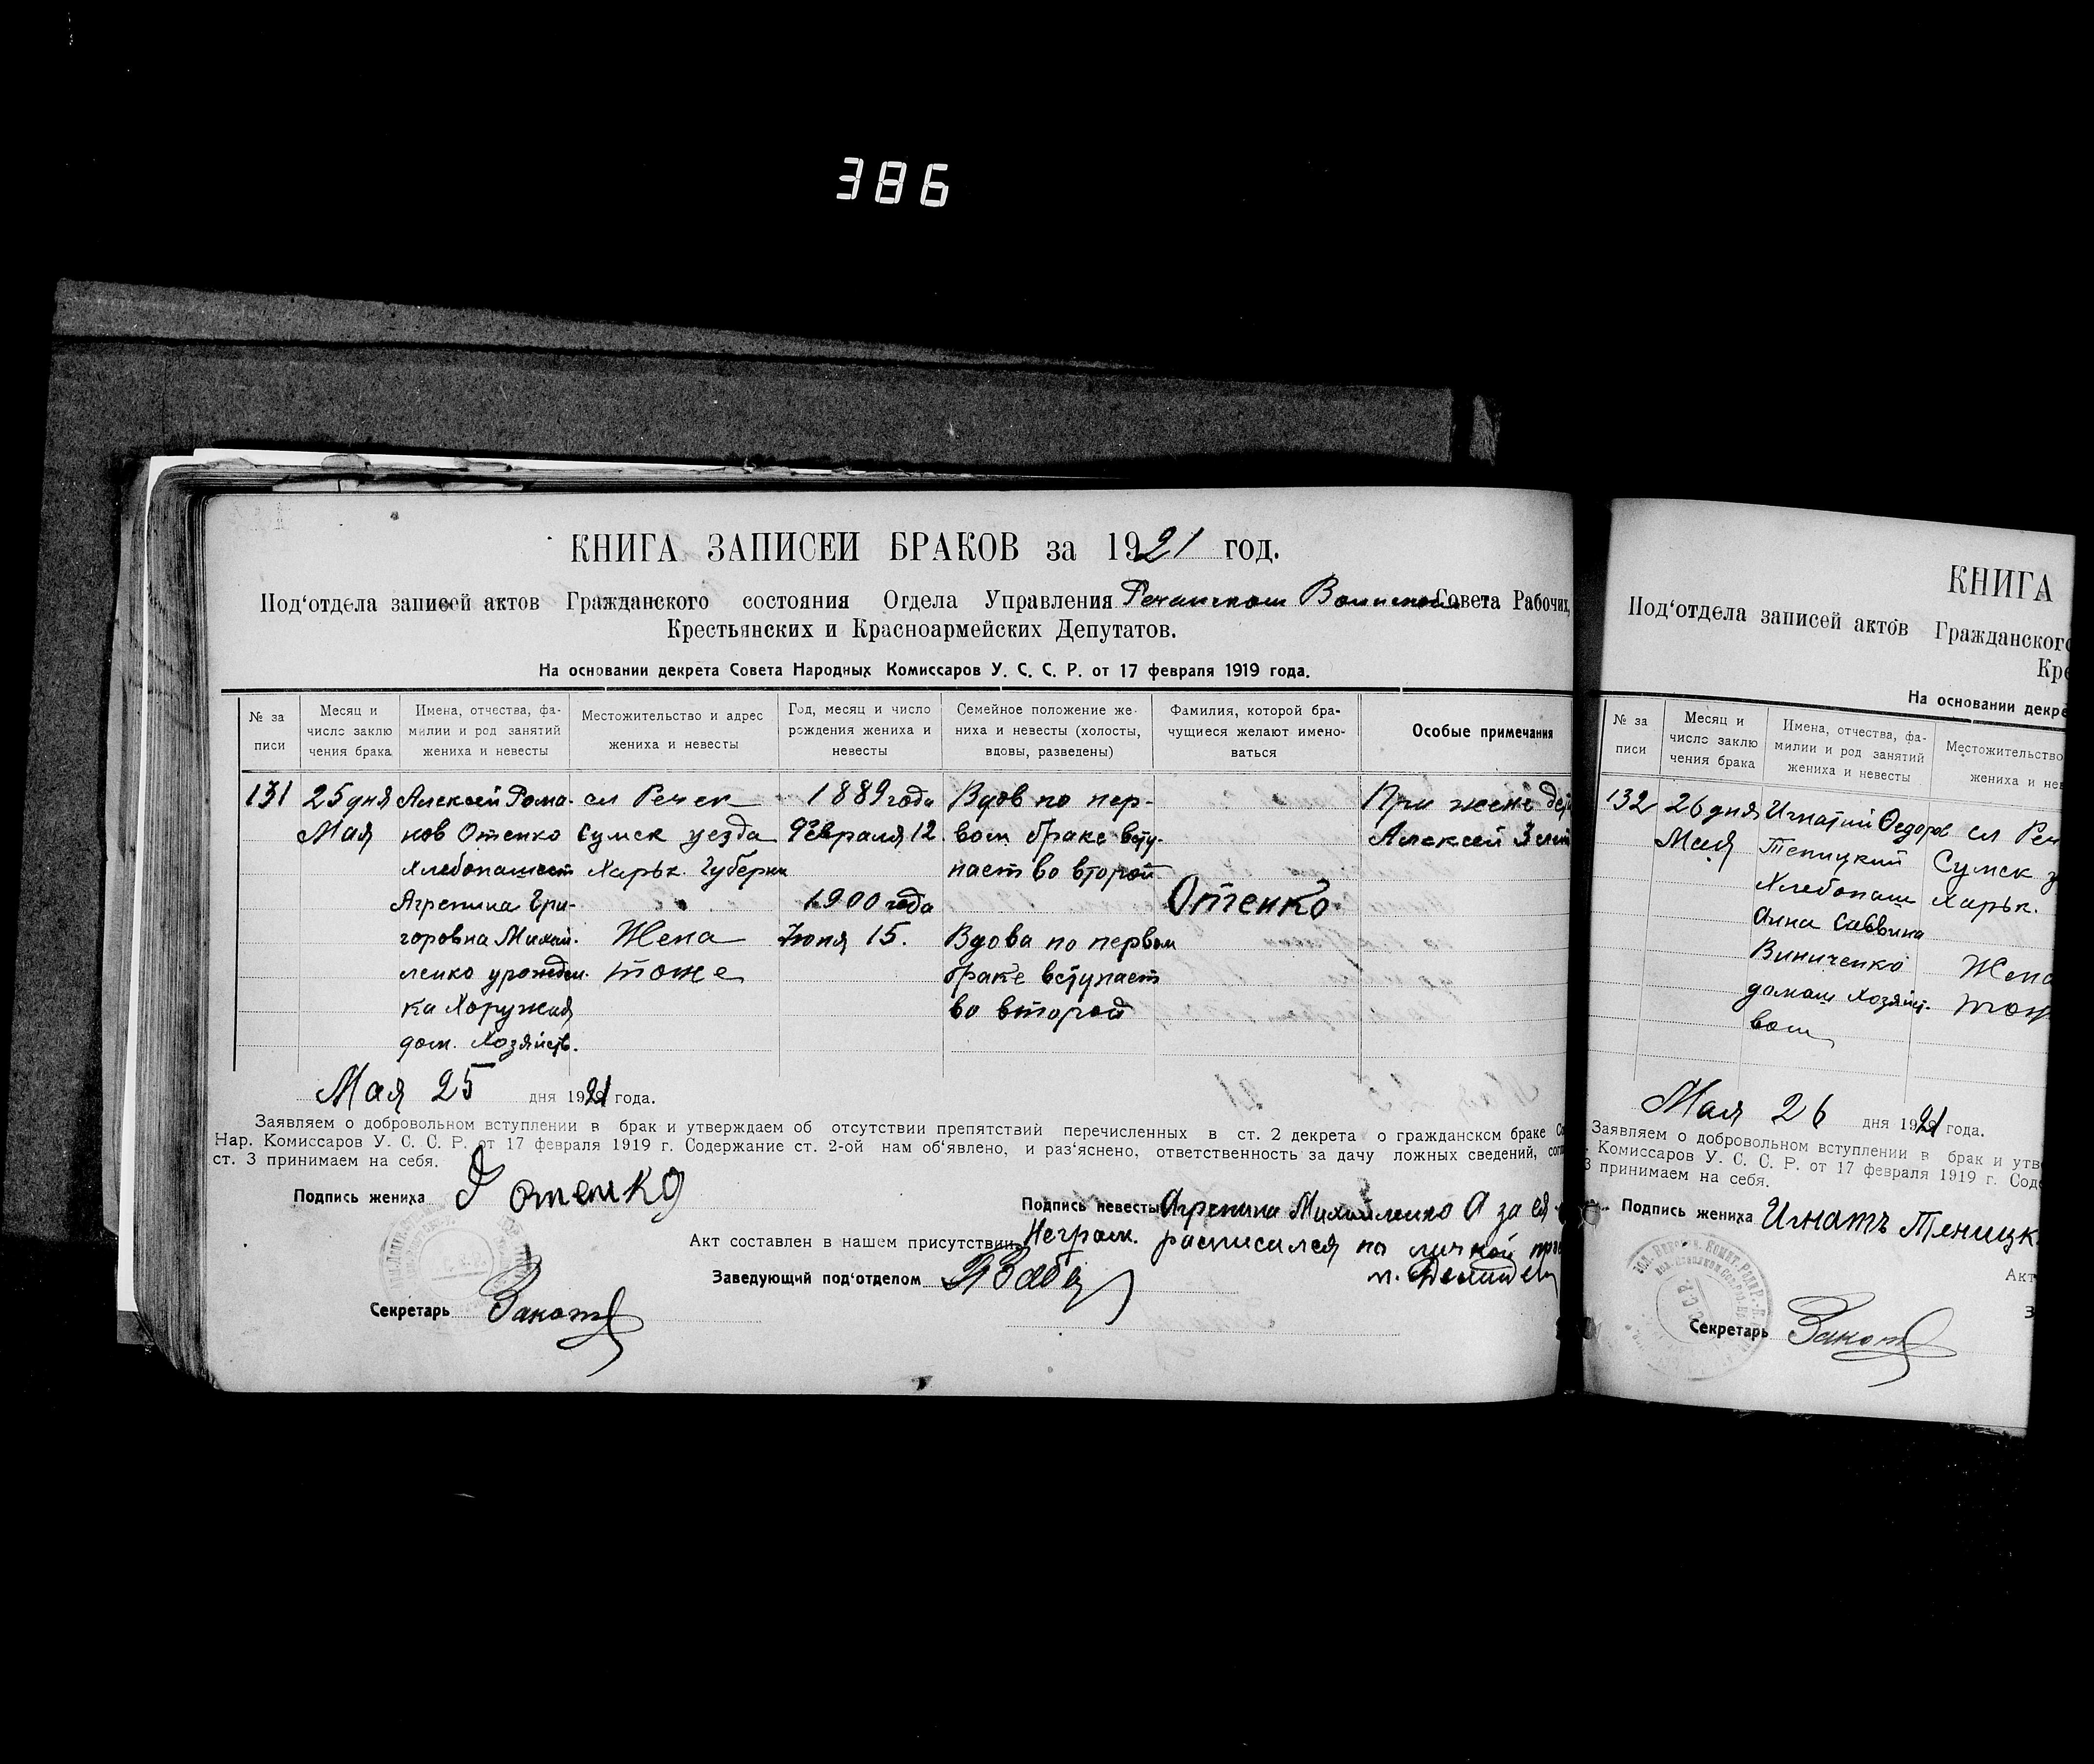 386
КНИГА ЗАПИСЕИ БРАКОВ за 1921 год.
Под‘отдела записей актов Гражданского состояния Отдела Управления Совета Рабочих,
Крестьянских и Красноармейских Депутатов.
На основании декрета Совета Народных Комиссаров У. С. С. Р. от 17 февраля 1919 года.
№ за
писи
Месяц и
число заклю
чения брака
Имена, отчества, фа-
милии и род занятий
жениха и невесты
Местожительство и адрес
жениха и невесты
Год, месяц и число
рождения жениха и
невесты
Семейное положение же-
ниха и невесты (холосты,
вдовы, разведены)
Фамилия, которой бра-
чущиеся желают имено-
ваться
Особые примечания
131
25 дня
Мая
Алексей Рома-
нов Отенко
Хлебопашест
Агрепина Гри-
горовна Михай-
ленко урожден-
ка Хоружая
дом. Хозяйств.
сл Речек
Сумск уезда
Харьк. Губерни
Жена
тоже
1889 года
Февраля 12
1900 года
Июня 15.
Вдов по пер-
вом браке всту-
пает во второй
Вдова по первом
браке вступает
во второй
Отенко
При жене
Алексей 3 лет
Мая 25 дня 1921 года.
Заявляем о добровольном вступлении в брак и утверждаем об отсутствии препятствий перечисленных в ст. 2 декрета о гражданском браке Со
Нар. Комиссаров У. С. С. Р. от 17 февраля 1919 г. Содержание ст. 2-ой нам об‘явлено, и раз‘яснено, ответственность за дачу ложных сведений, согл
ст. 3 принимаем на себя.
Подпись жениха Отенко
Подпись невесты Агрепина Михайленко А за ея
Акт составлен в нашем присутствии Неграм. расписался по личной
Заведующий под‘отделом
Секретарь
КНИГА
Под‘отдела записей актов Гражданского
Кре
На основании декре
№ за
писи
Месяц и
число заклю
чения брака
Имена, отчества, фа-
милии и род занятий
жениха и невесты
Местожительство
жениха и нев
132
26 дня
Мая
Игнатий Федоров
Теницкий
Хлебопаш
Анна Саввина
Виниченко
домаш хозяйст-
вом
сл Реч
Сумск у
Харьк.
Жена
тож
Мая 26 дня 1921 года.
Заявляем о добровольном вступлении в брак и утв
Комиссаров У. С. С. Р. от 17 февраля 1919 г. Сод
3 принимаем на себя.
Подпись жениха Игнатъ Теницк
Акт
З
Секретарь